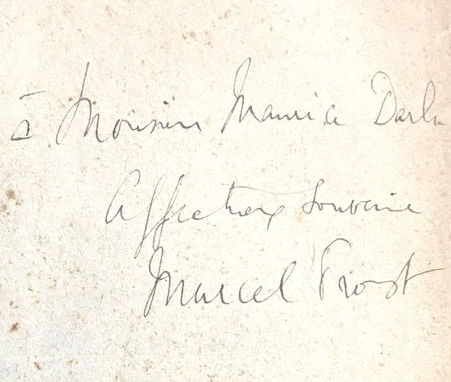 à Monsieur Maurice Darlu
Affectueux souvenir
Marcel Proust